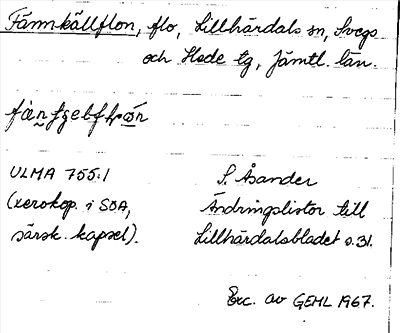 Fännkällflon, flo, Lillhärdals sn, Svegs
och Hede tg, Jämtl. län.
ULMA 755:1
(xerokop. i SOA,
särsk. kapsel).
S. Åsander
Ändringslistor till
Lillhärdalsbladet s. 31.
Exc. av GEHL 1967.